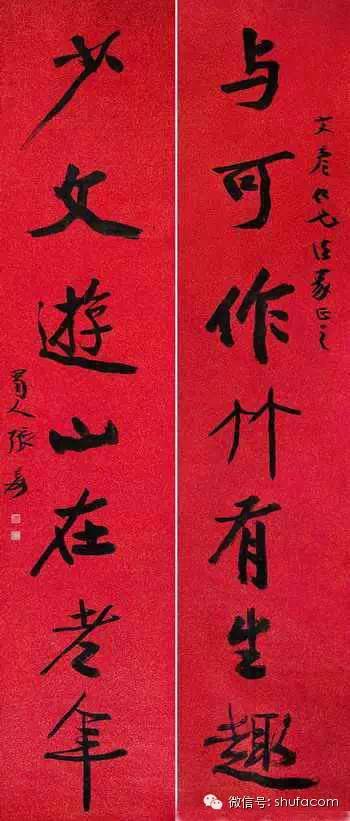 与可作竹有生趣
少文遊山在老年
蜀人張爰
微信号: shufacom